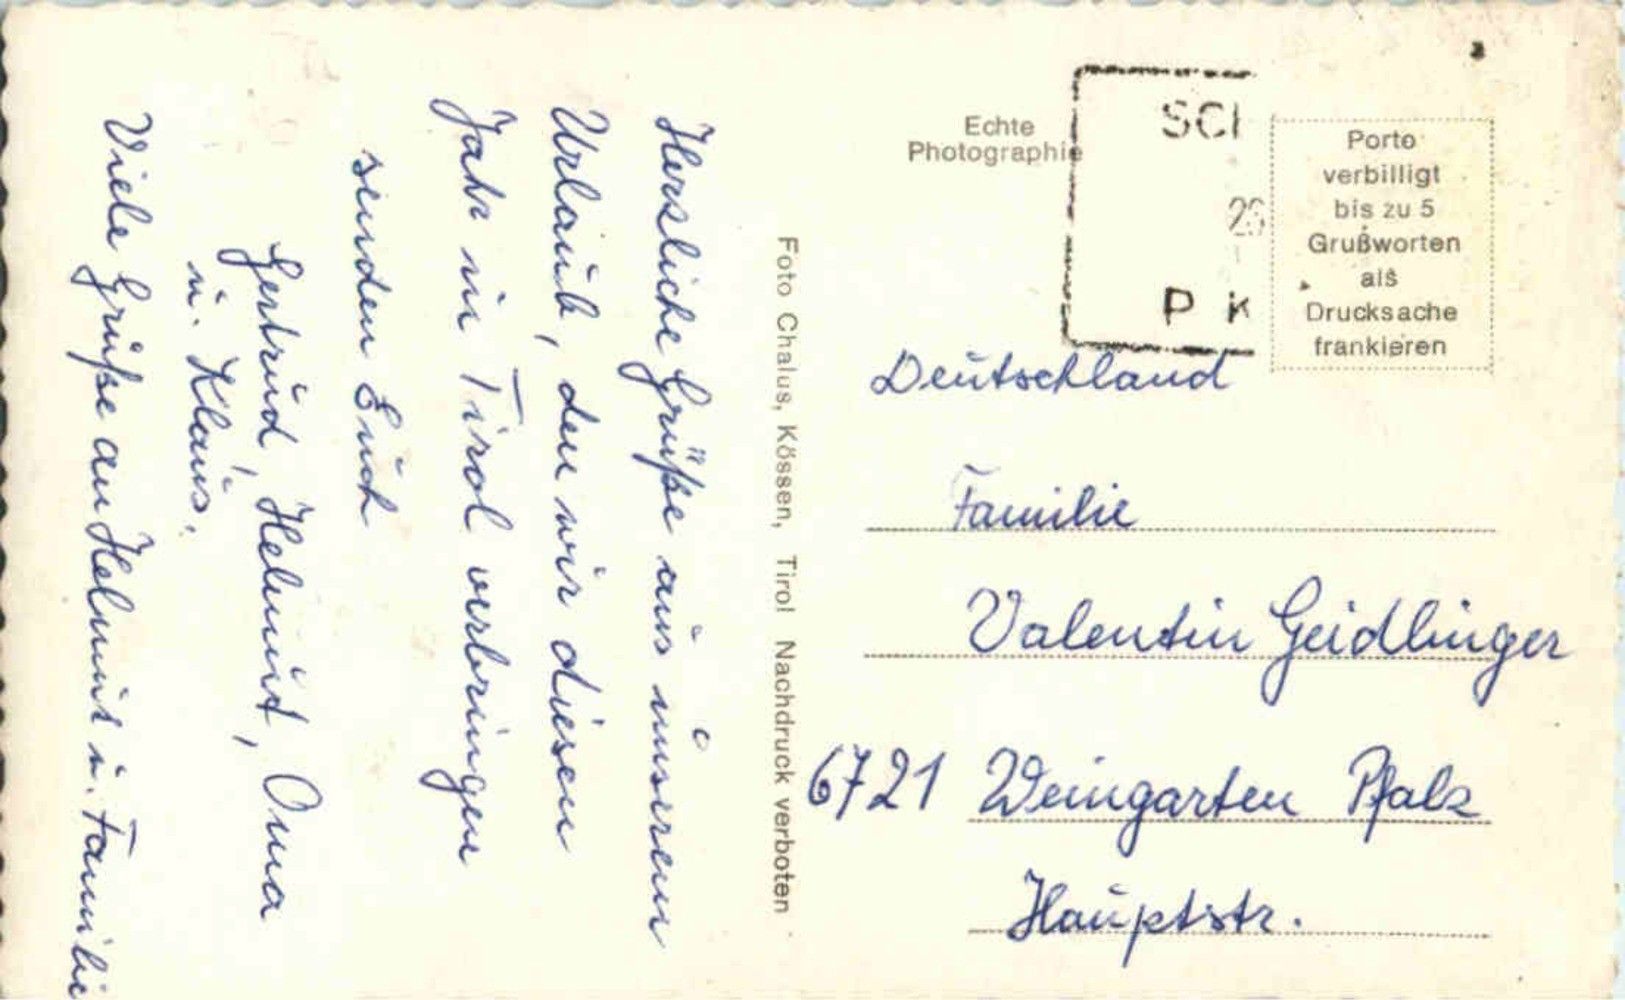 Herzliche Grüße aus unserem
Urlaub, den wir diesen
Jahr in Tirol verbringen
senden Euch
Gertrud, Helmut, Oma
u. Klaus.
Viele Grüße an Helmut u. Familie
Foto Chalus, Kössen, Tirol Nachdruck verboten
Echte
Photographie
SCI
26
P K
Porto
verbilligt
bis zu 5
Grußworten
als
Drucksache
frankieren
Deutschland
Familie
Valentin Geidlinger
6721 Weingarten Pfalz
Hauptstr.